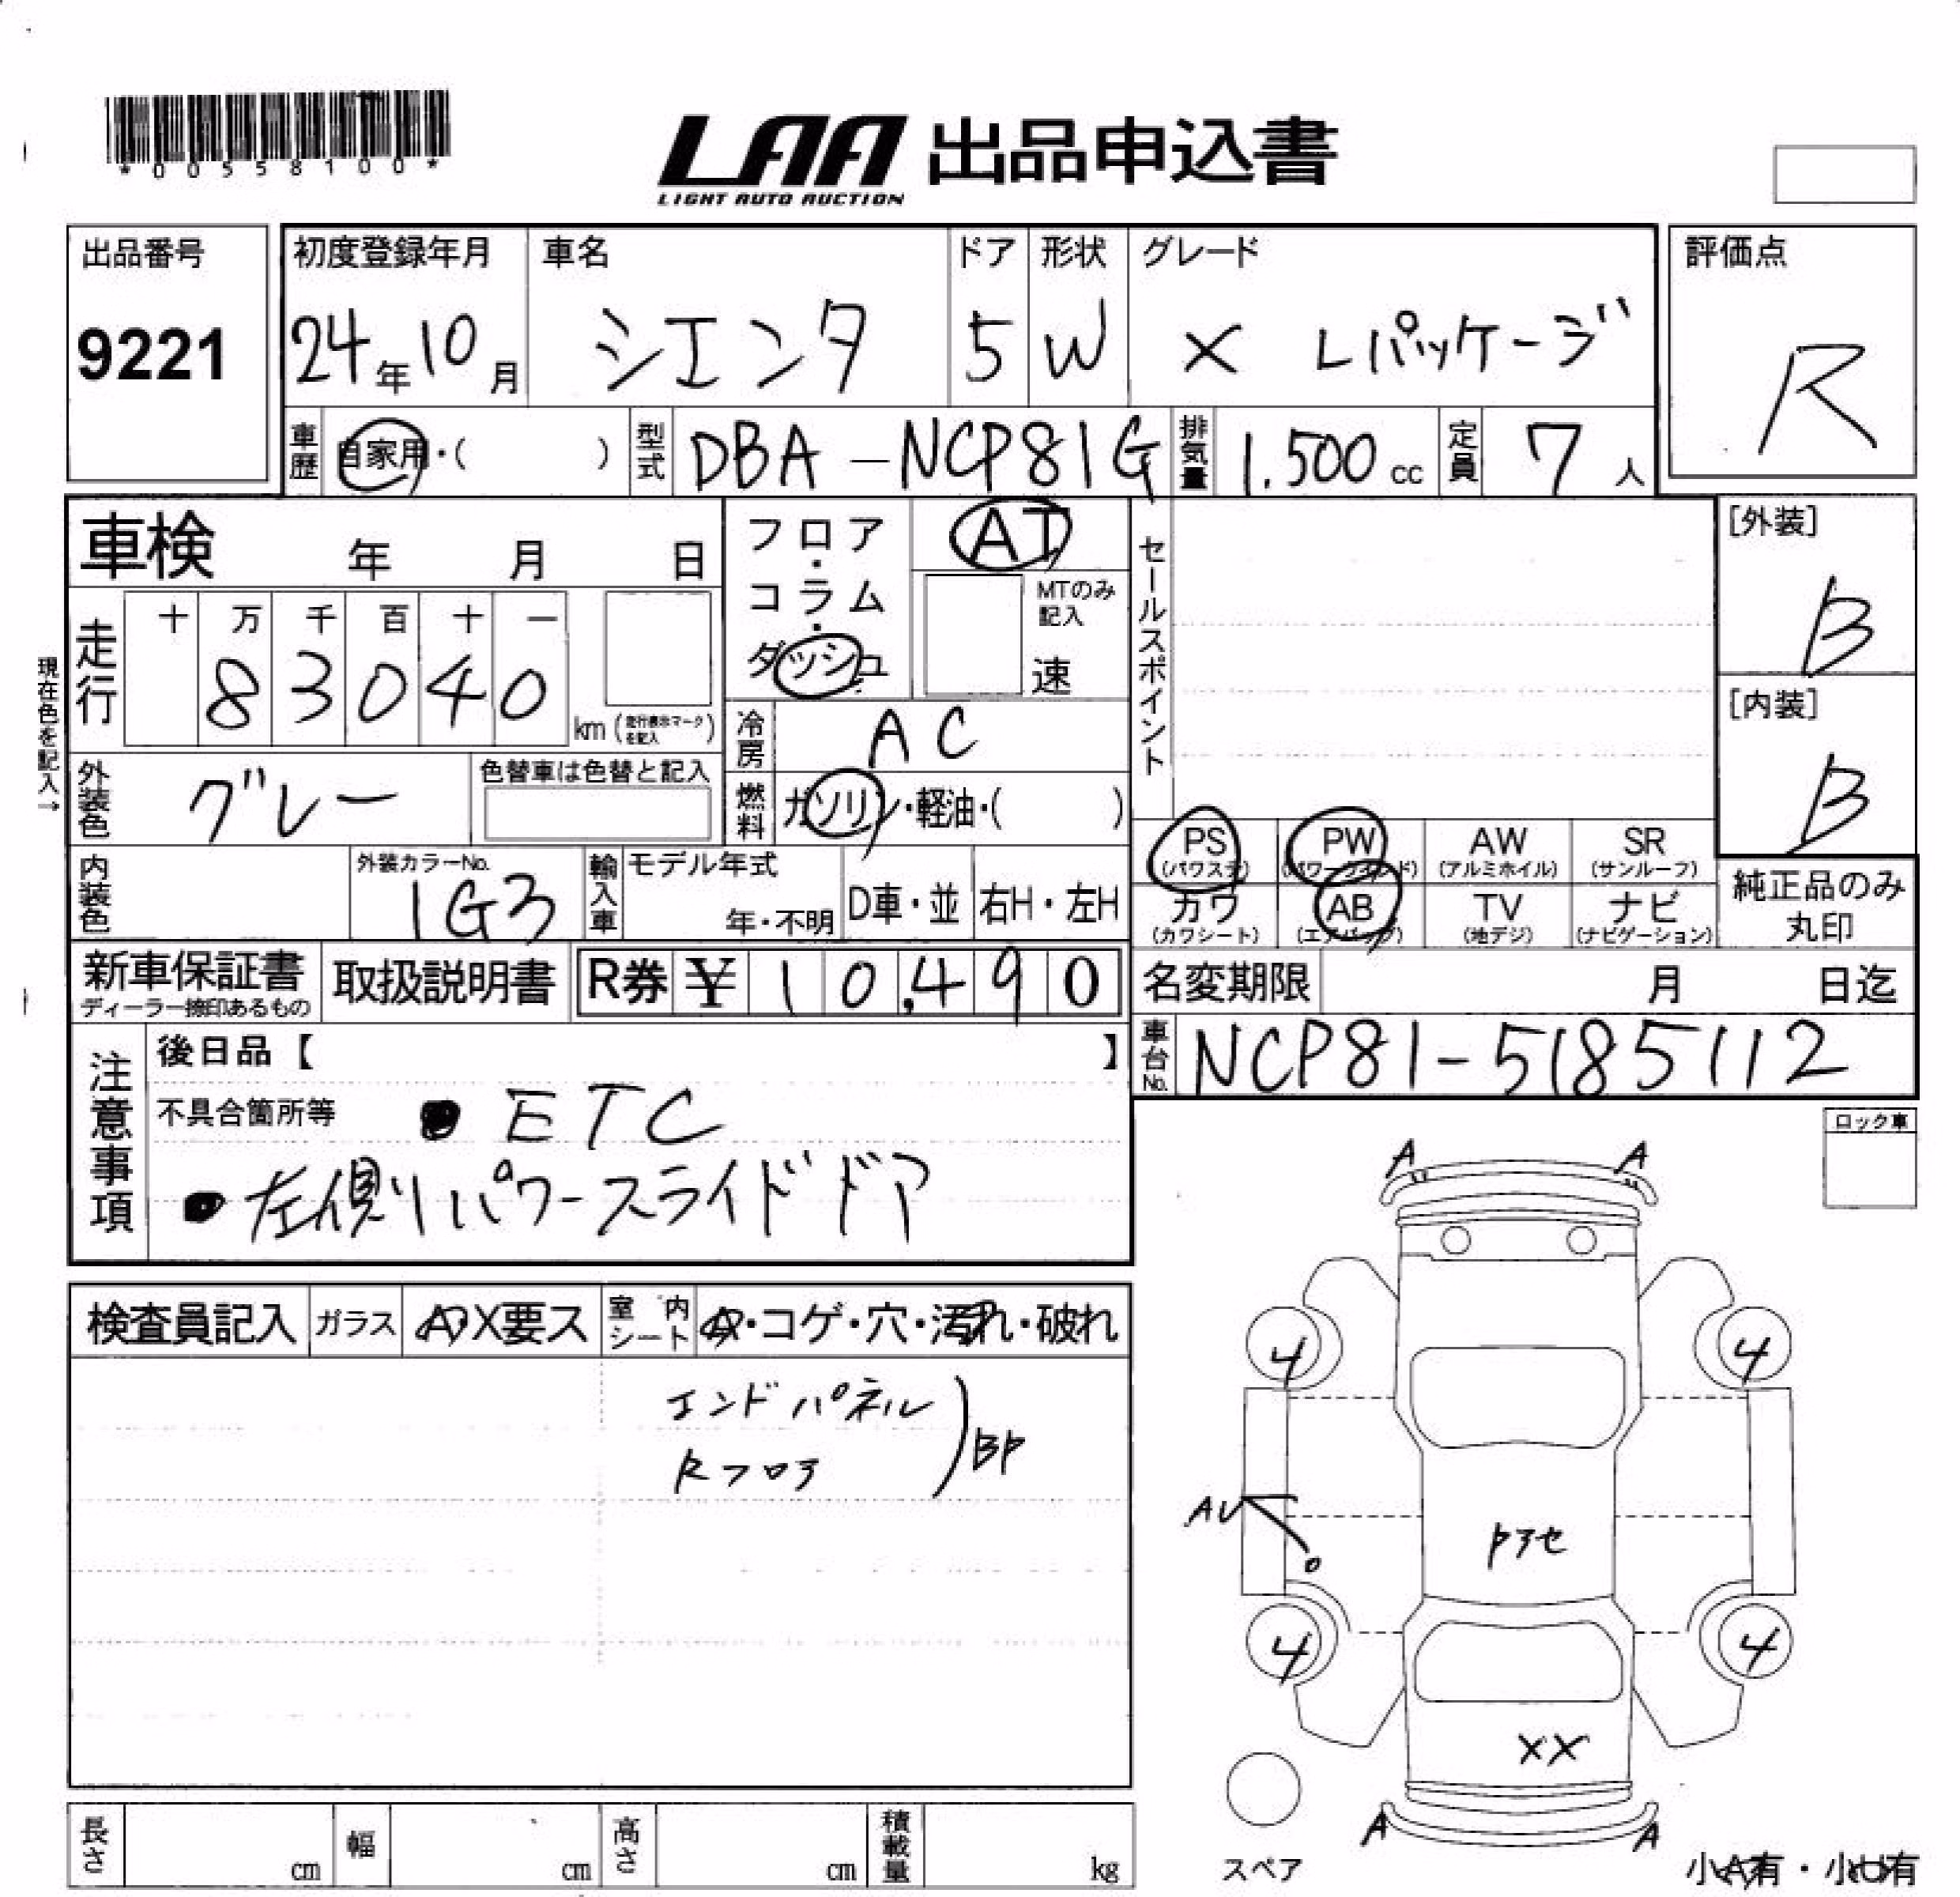 *00558100*
LAA 出品申込書
LIGHT AUTO AUCTION
出品番号
9221
初度登録年月
24年10月
車名
シエンタ
ドア
5
形状
W
グレード
X Lパッケージ
評価点
R
車歴
自家用・( )
型式
DBA-NCP81G
排気量
1.500cc
定員
7人
車検 年 月 日
フロア・コラム・ダッシュ
AT
MTのみ記入
速
セールスポイント
[外装]
B
[内装]
B
現在色を記入→
走行
十 万 千 百 十 一
8 3 0 4 0
km (走行表示マークを記入)
冷房
AC
外装色
グレー
色替車は色替と記入
燃料
ガソリン・軽油・( )
PS (パワステ)
PW (パワーウインド)
AW (アルミホイル)
SR (サンルーフ)
カワ (カワシート)
AB (エアバッグ)
TV (地デジ)
ナビ (ナビゲーション)
純正品のみ丸印
内装色
外装カラーNo.
1G3
輸入車
モデル年式
年・不明
D車・並
右H・左H
新車保証書
ディーラー捺印あるもの
取扱説明書
R券 ¥ 10,490
名変期限 月 日迄
車台No.
NCP81-5185112
注意事項
後日品【 】
不具合箇所等
● ETC
● 左側リパワースライドドア
ロック車
検査員記入
ガラス
A・X要ス
室内シート
A・コゲ・穴・汚れ・破れ
エンドパネル
Rフロア
A
A
4
4
AU
4
4
XX
A
A
スペア
小A有・小U有
長さ cm
幅 cm
高さ cm
積載量 kg